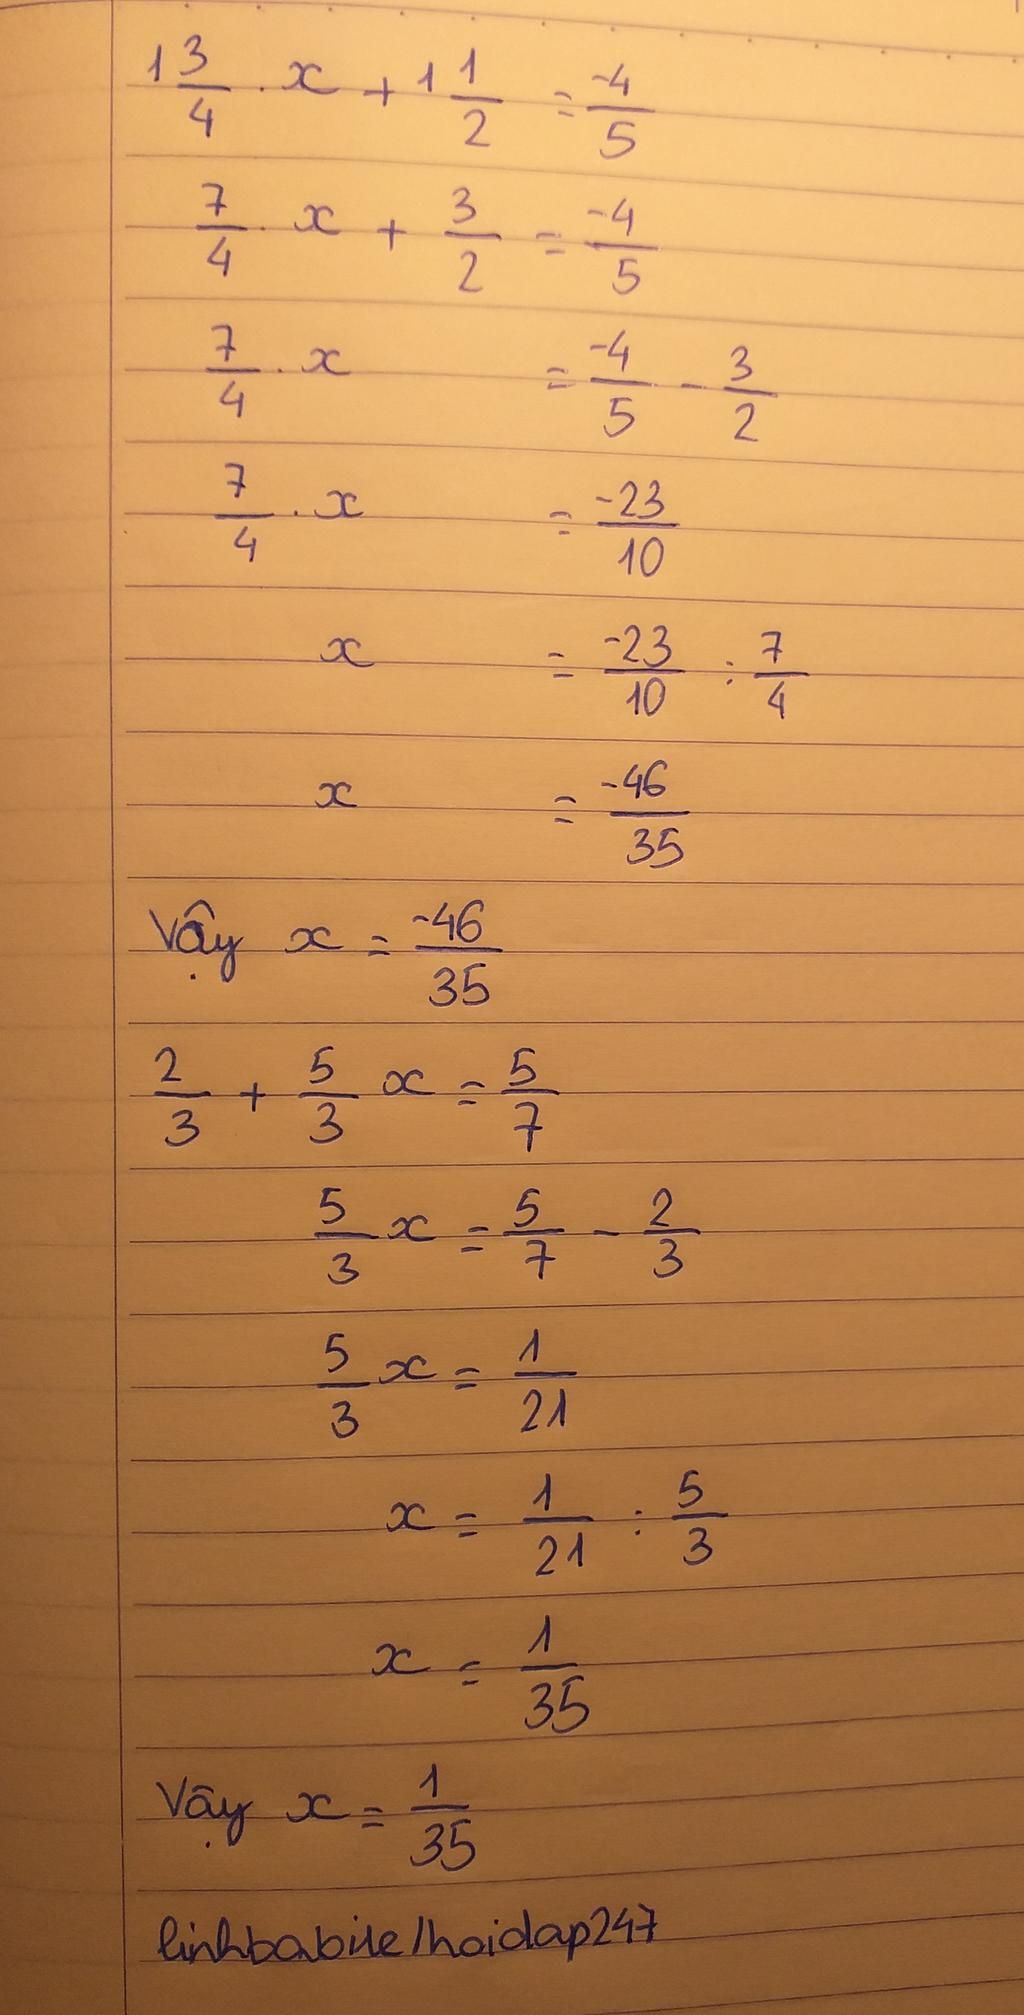 1 3/4 . x + 1 1/2 = -4/5
7/4 . x + 3/2 = -4/5
7/4 . x = -4/5 - 3/2
7/4 . x = -23/10
x = -23/10 : 7/4
x = -46/35
Vậy x = -46/35
2/3 + 5/3 x = 5/7
5/3 x = 5/7 - 2/3
5/3 x = 1/21
x = 1/21 : 5/3
x = 1/35
Vậy x = 1/35
linhbabie/hoidap247